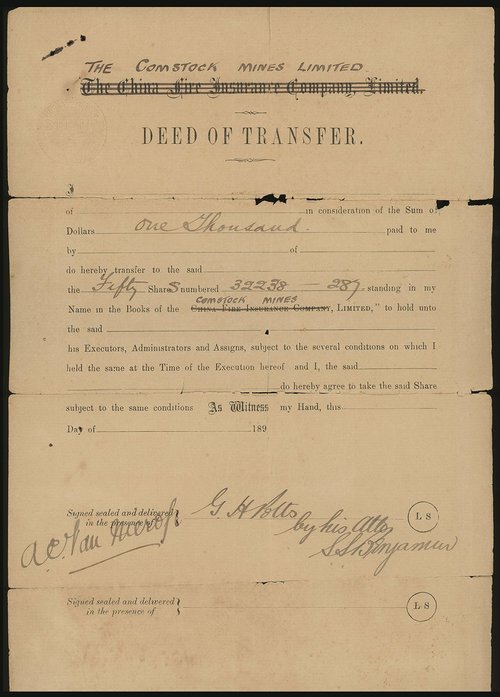 THE COMSTOCK MINES LIMITED
The China Fire Insurance Company, Limited.
DEED OF TRANSFER.
I
of in consideration of the Sum of
Dollars One Thousand. paid to me
by of
do hereby transfer to the said
the Fifty Shares numbered 32238 — 287 standing in my
COMSTOCK MINES
Name in the Books of the China Fire Insurance Company, Limited," to hold unto
the said
his Executors, Administrators and Assigns, subject to the several conditions on which I
held the same at the Time of the Execution hereof and I, the said
do hereby agree to take the said Share
subject to the same conditions As Witness my Hand, this
Day of 189
Signed sealed and delivered
in the presence of
G. H. Potts
by his Atty
S. S. Benjamin
L S
Signed sealed and delivered
in the presence of
L S